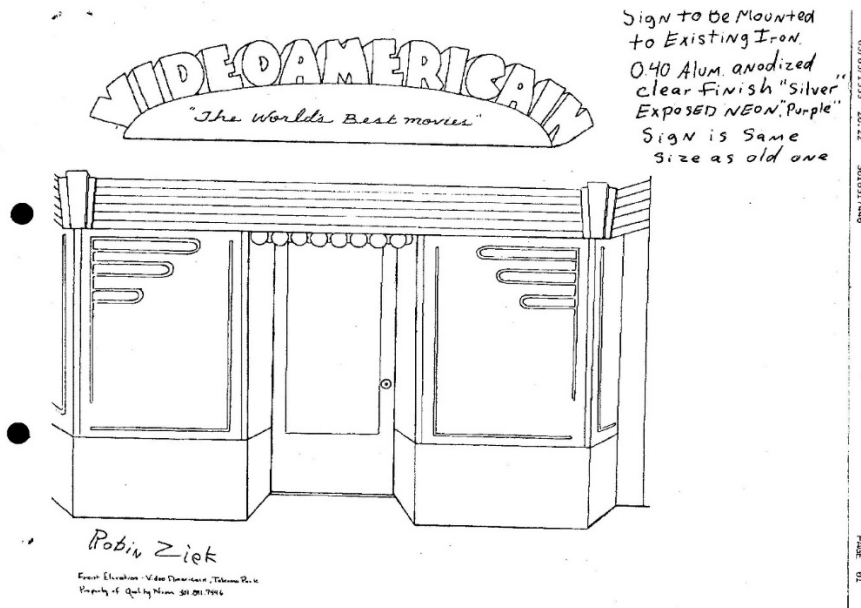 VIDEOAMERICAIN
"The World's Best movies"
Sign to Be Mounted
to Existing Iron.
0.40 Alum. anodized
clear Finish "Silver"
EXPOSED NEON, "Purple"
Sign is Same
Size as old one
Robin Ziek
Front Elevation - Video Americain, Takoma Park
Property of Quality Neon
PAGE 01